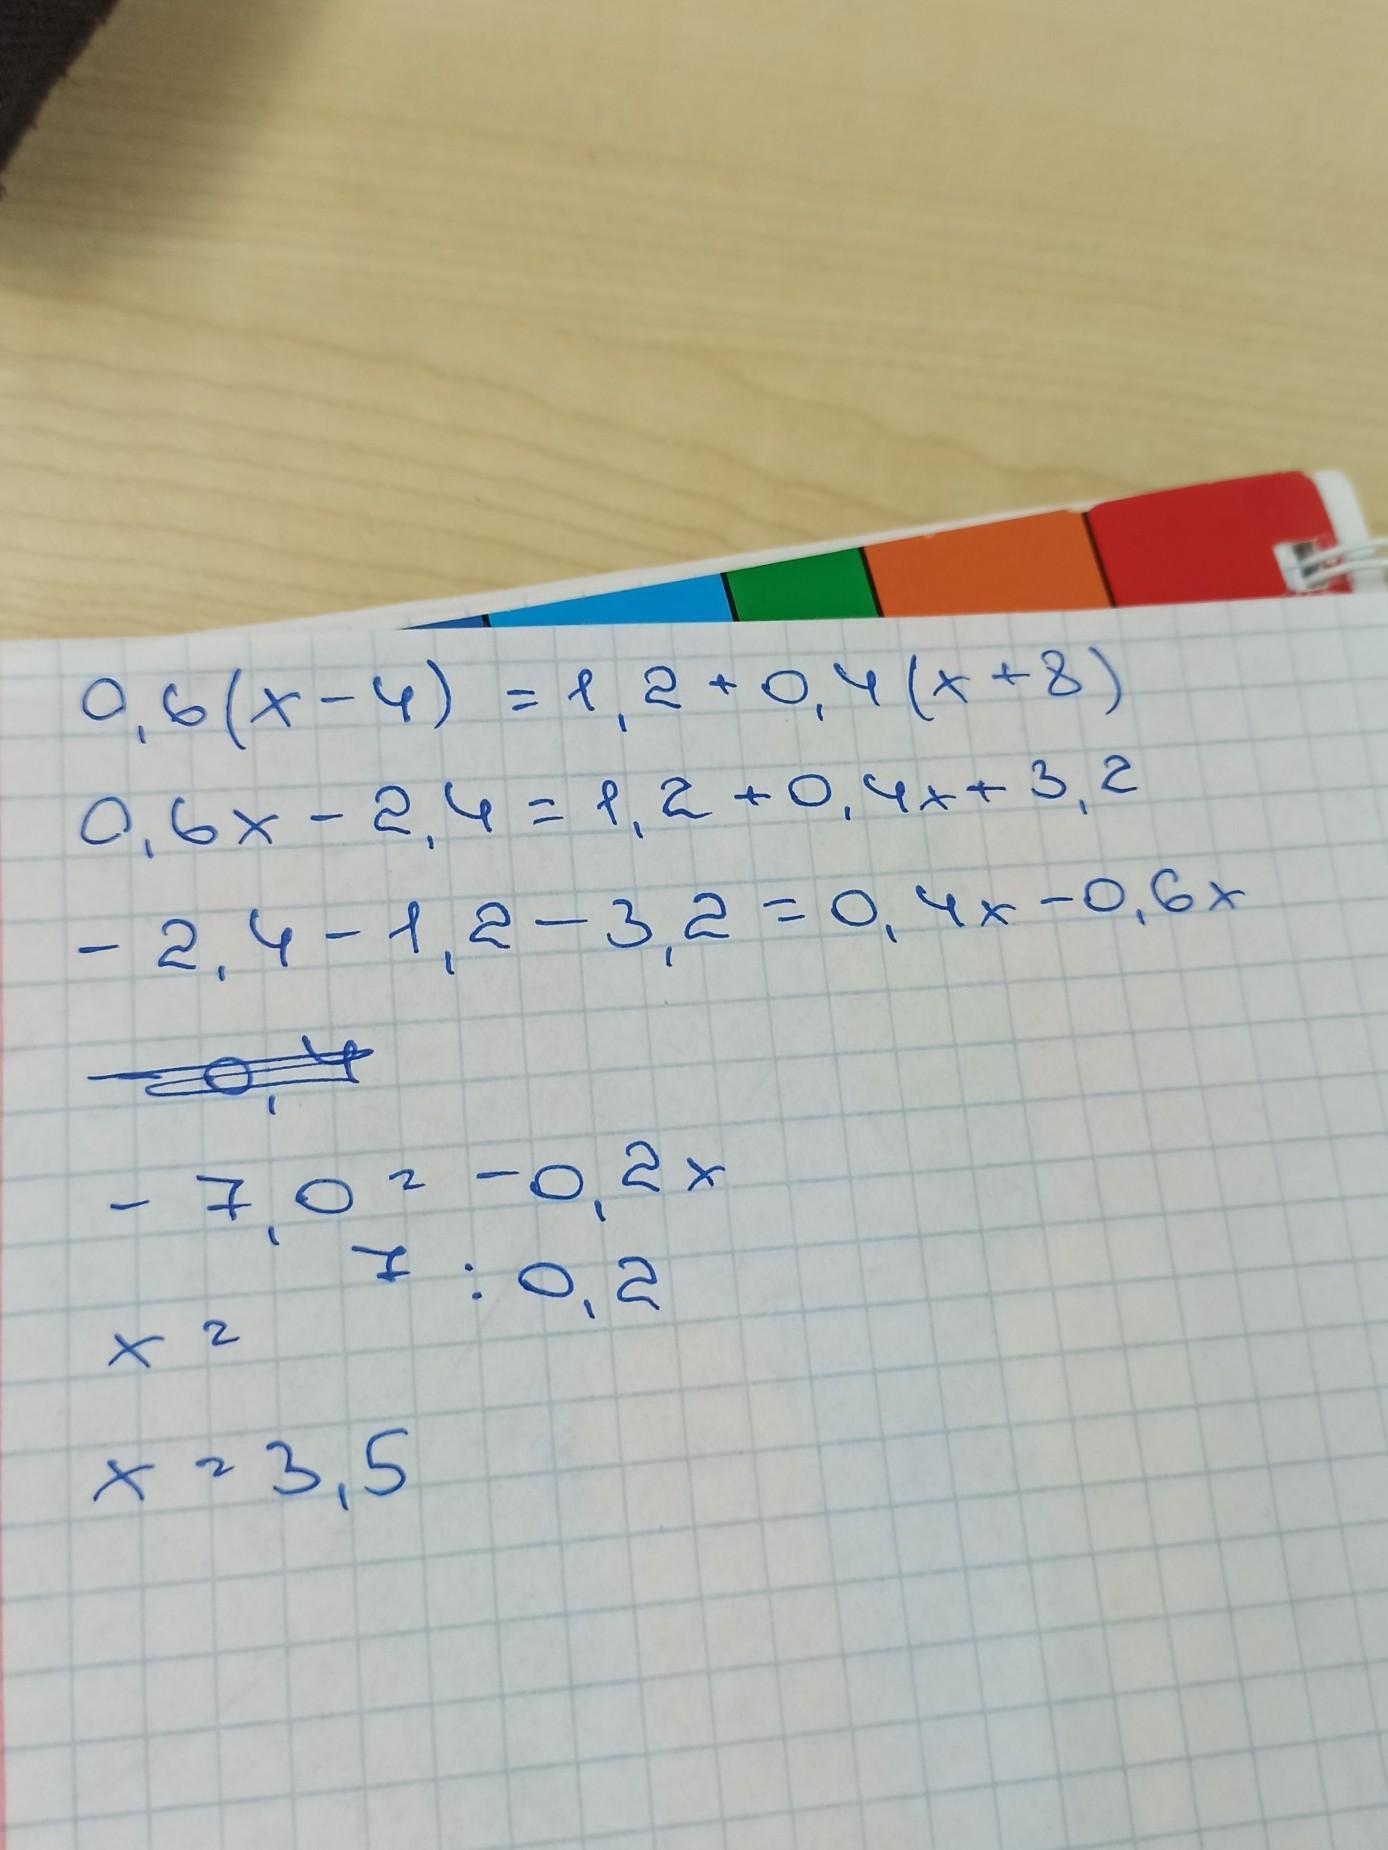 0,6(x-4) = 1,2+0,4(x+8)
0,6x-2,4=1,2+0,4x+3,2
-2,4-1,2-3,2=0,4x-0,6x
-7,0=-0,2x
x= 7:0,2
x=3,5